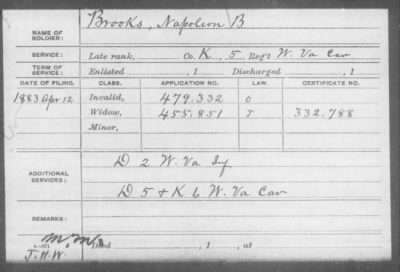 Brooks, Napoleon B
NAME OF SOLDIER:
SERVICE: Late rank, Co. K, 5 Reg't W. Va Cav
TERM OF SERVICE: Enlisted , 1 Discharged , 1
DATE OF FILING. CLASS. APPLICATION NO. LAW. CERTIFICATE NO.
1883 Apr 12 Invalid, 479.332 O
Widow, 455.851 J 332.788
Minor,
ADDITIONAL SERVICES:
D 2 W. Va Inf
D 5 + K 6 W. Va Cav
REMARKS:
Died , 1 , at
J.H.W.